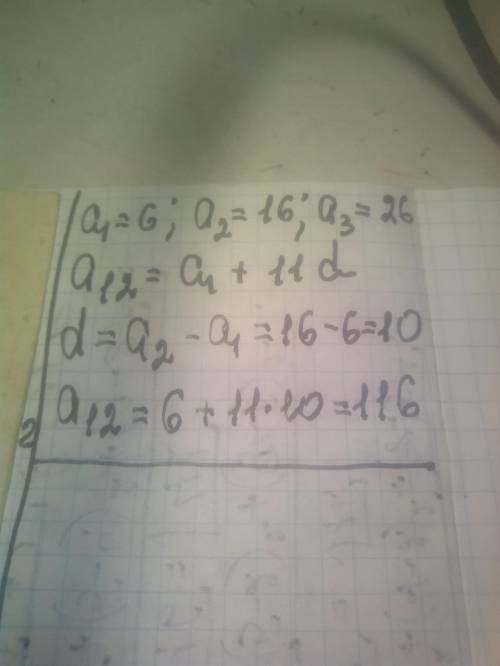 a₁=6; a₂=16; a₃=26
a₁₂=a₁+11d
d=a₂-a₁=16-6=10
a₁₂=6+11·10=116